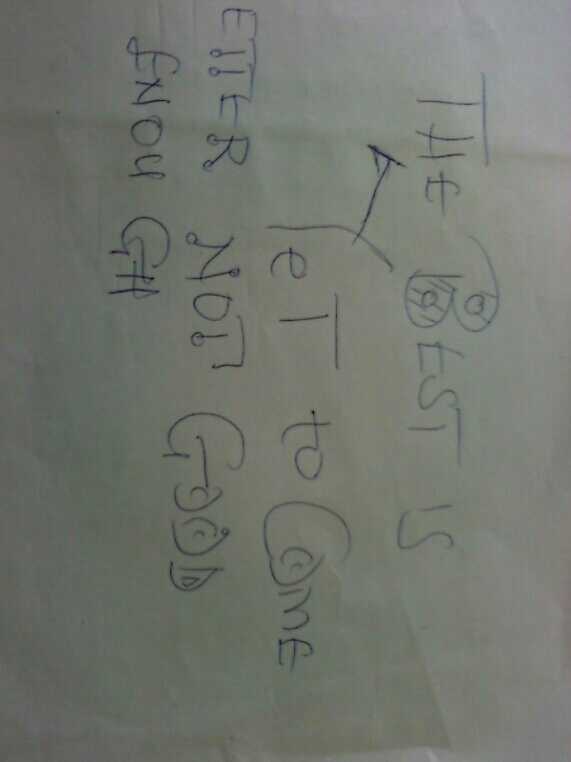 THE BEST IS
YeT to COME
ETTER NOT GOOD
ENOUGH